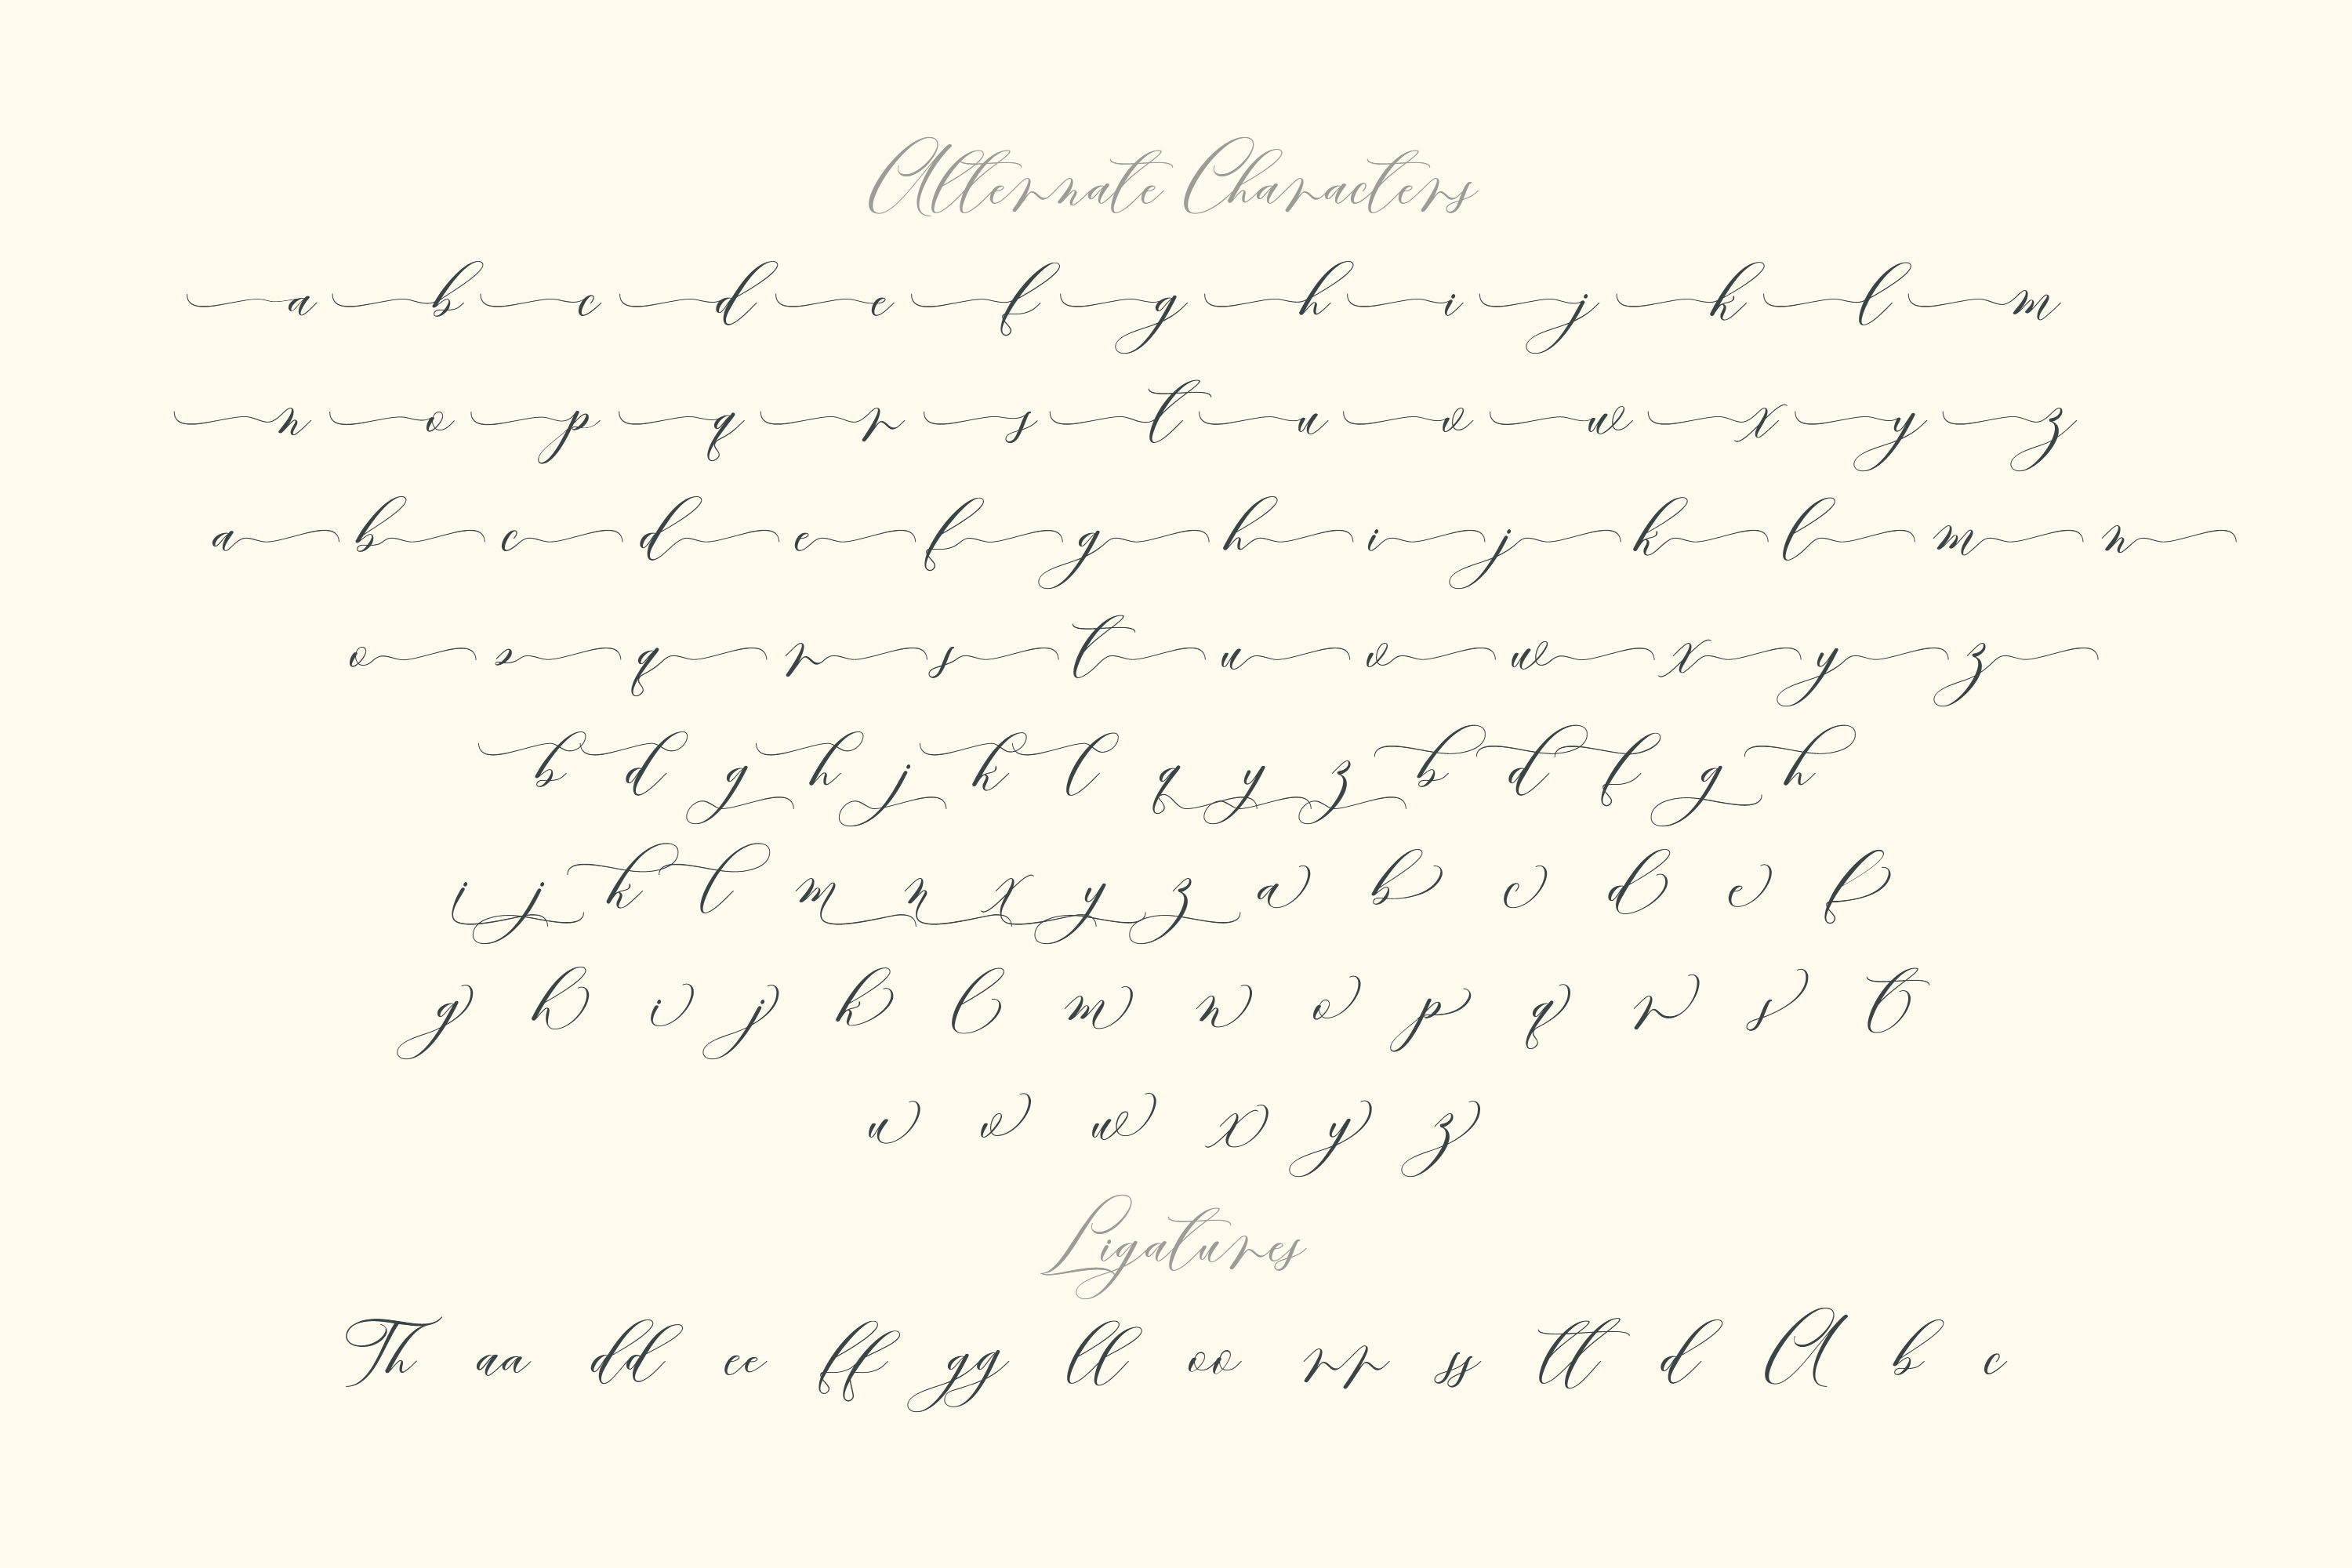 Alternate Characters
a b c d e f g h i j k l m
n o p q r s t u v w x y z
a b c d e f g h i j k l m n
o s q r s t u v w x y z
b d g h j k l q y z b d f g h
i j k l m n x y z a b c d e f
g h i j k l m n o p q r s t
u v w x y z
Ligatures
Th aa dd ee ff gg ll oo rr ss tt d A b c